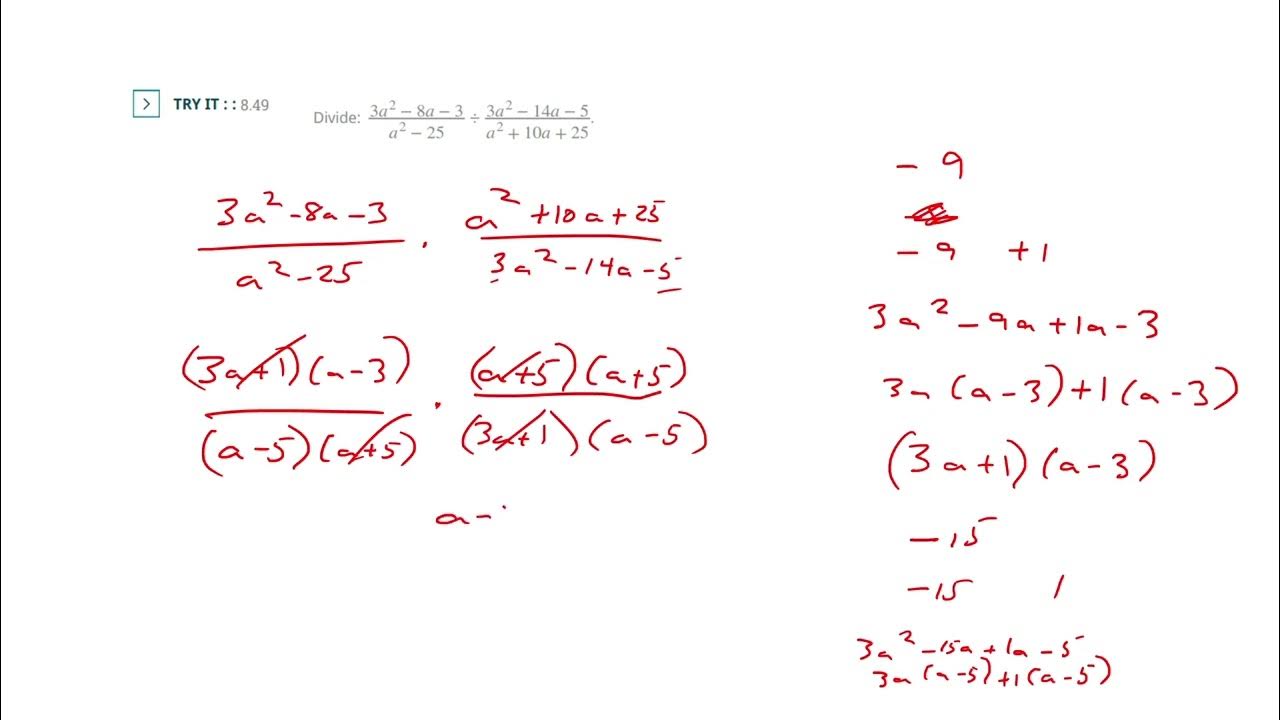 > TRY IT : : 8.49
Divide: (3a² − 8a − 3)/(a² − 25) ÷ (3a² − 14a − 5)/(a² + 10a + 25).
(3a² - 8a - 3)/(a² - 25) · (a² + 10a + 25)/(3a² - 14a - 5)
((3a+1)(a-3))/((a-5)(a+5)) · ((a+5)(a+5))/((3a+1)(a-5))
a -
- 9
- 9 +1
3a² - 9a + 1a - 3
3a (a - 3) + 1 (a - 3)
(3a+1) (a - 3)
-15
-15 1
3a² - 15a + 1a - 5
3a (a-5) + 1 (a-5)